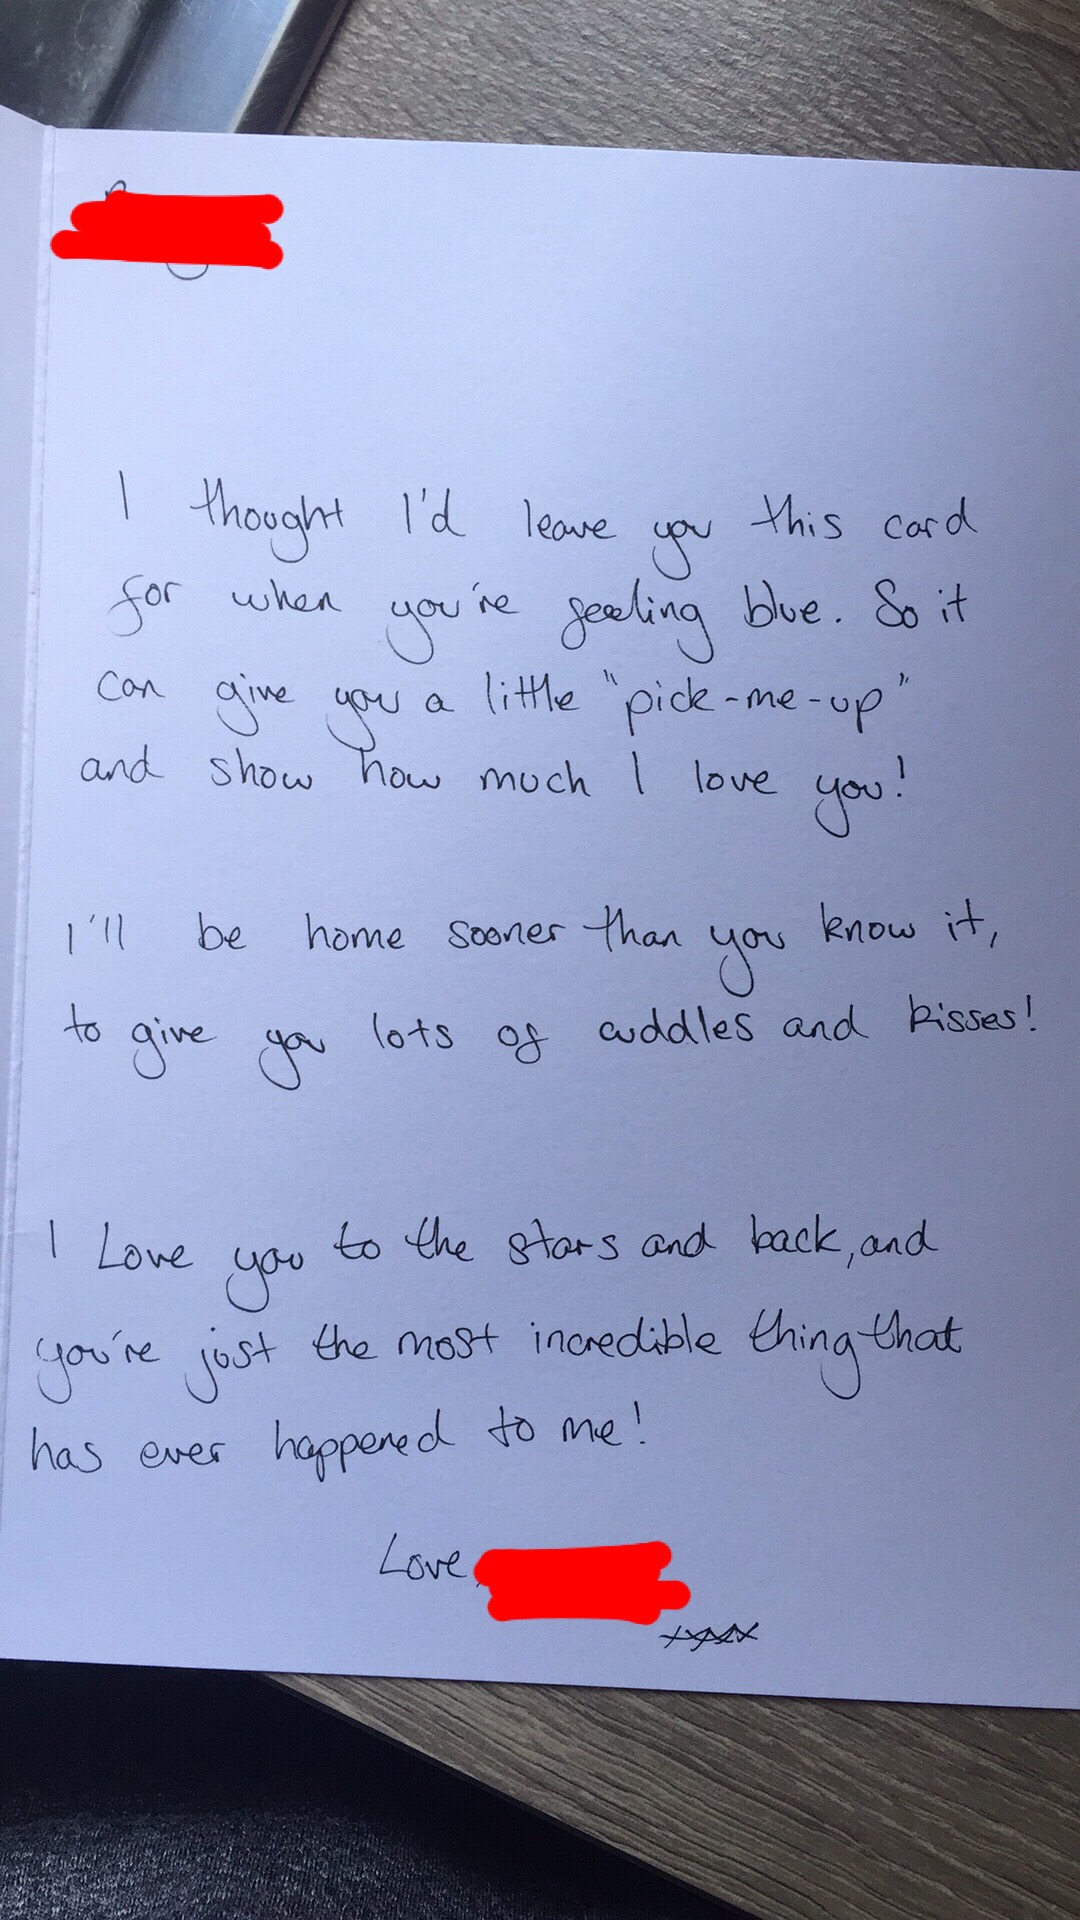 I thought I'd leave you this card
for when you're feeling blue. So it
can give you a little "pick-me-up"
and show how much I love you!
I'll be home sooner than you know it,
to give you lots of cuddles and kisses!
I Love you to the stars and back, and
you're just the most incredible thing that
has ever happened to me!
Love,
xxxx